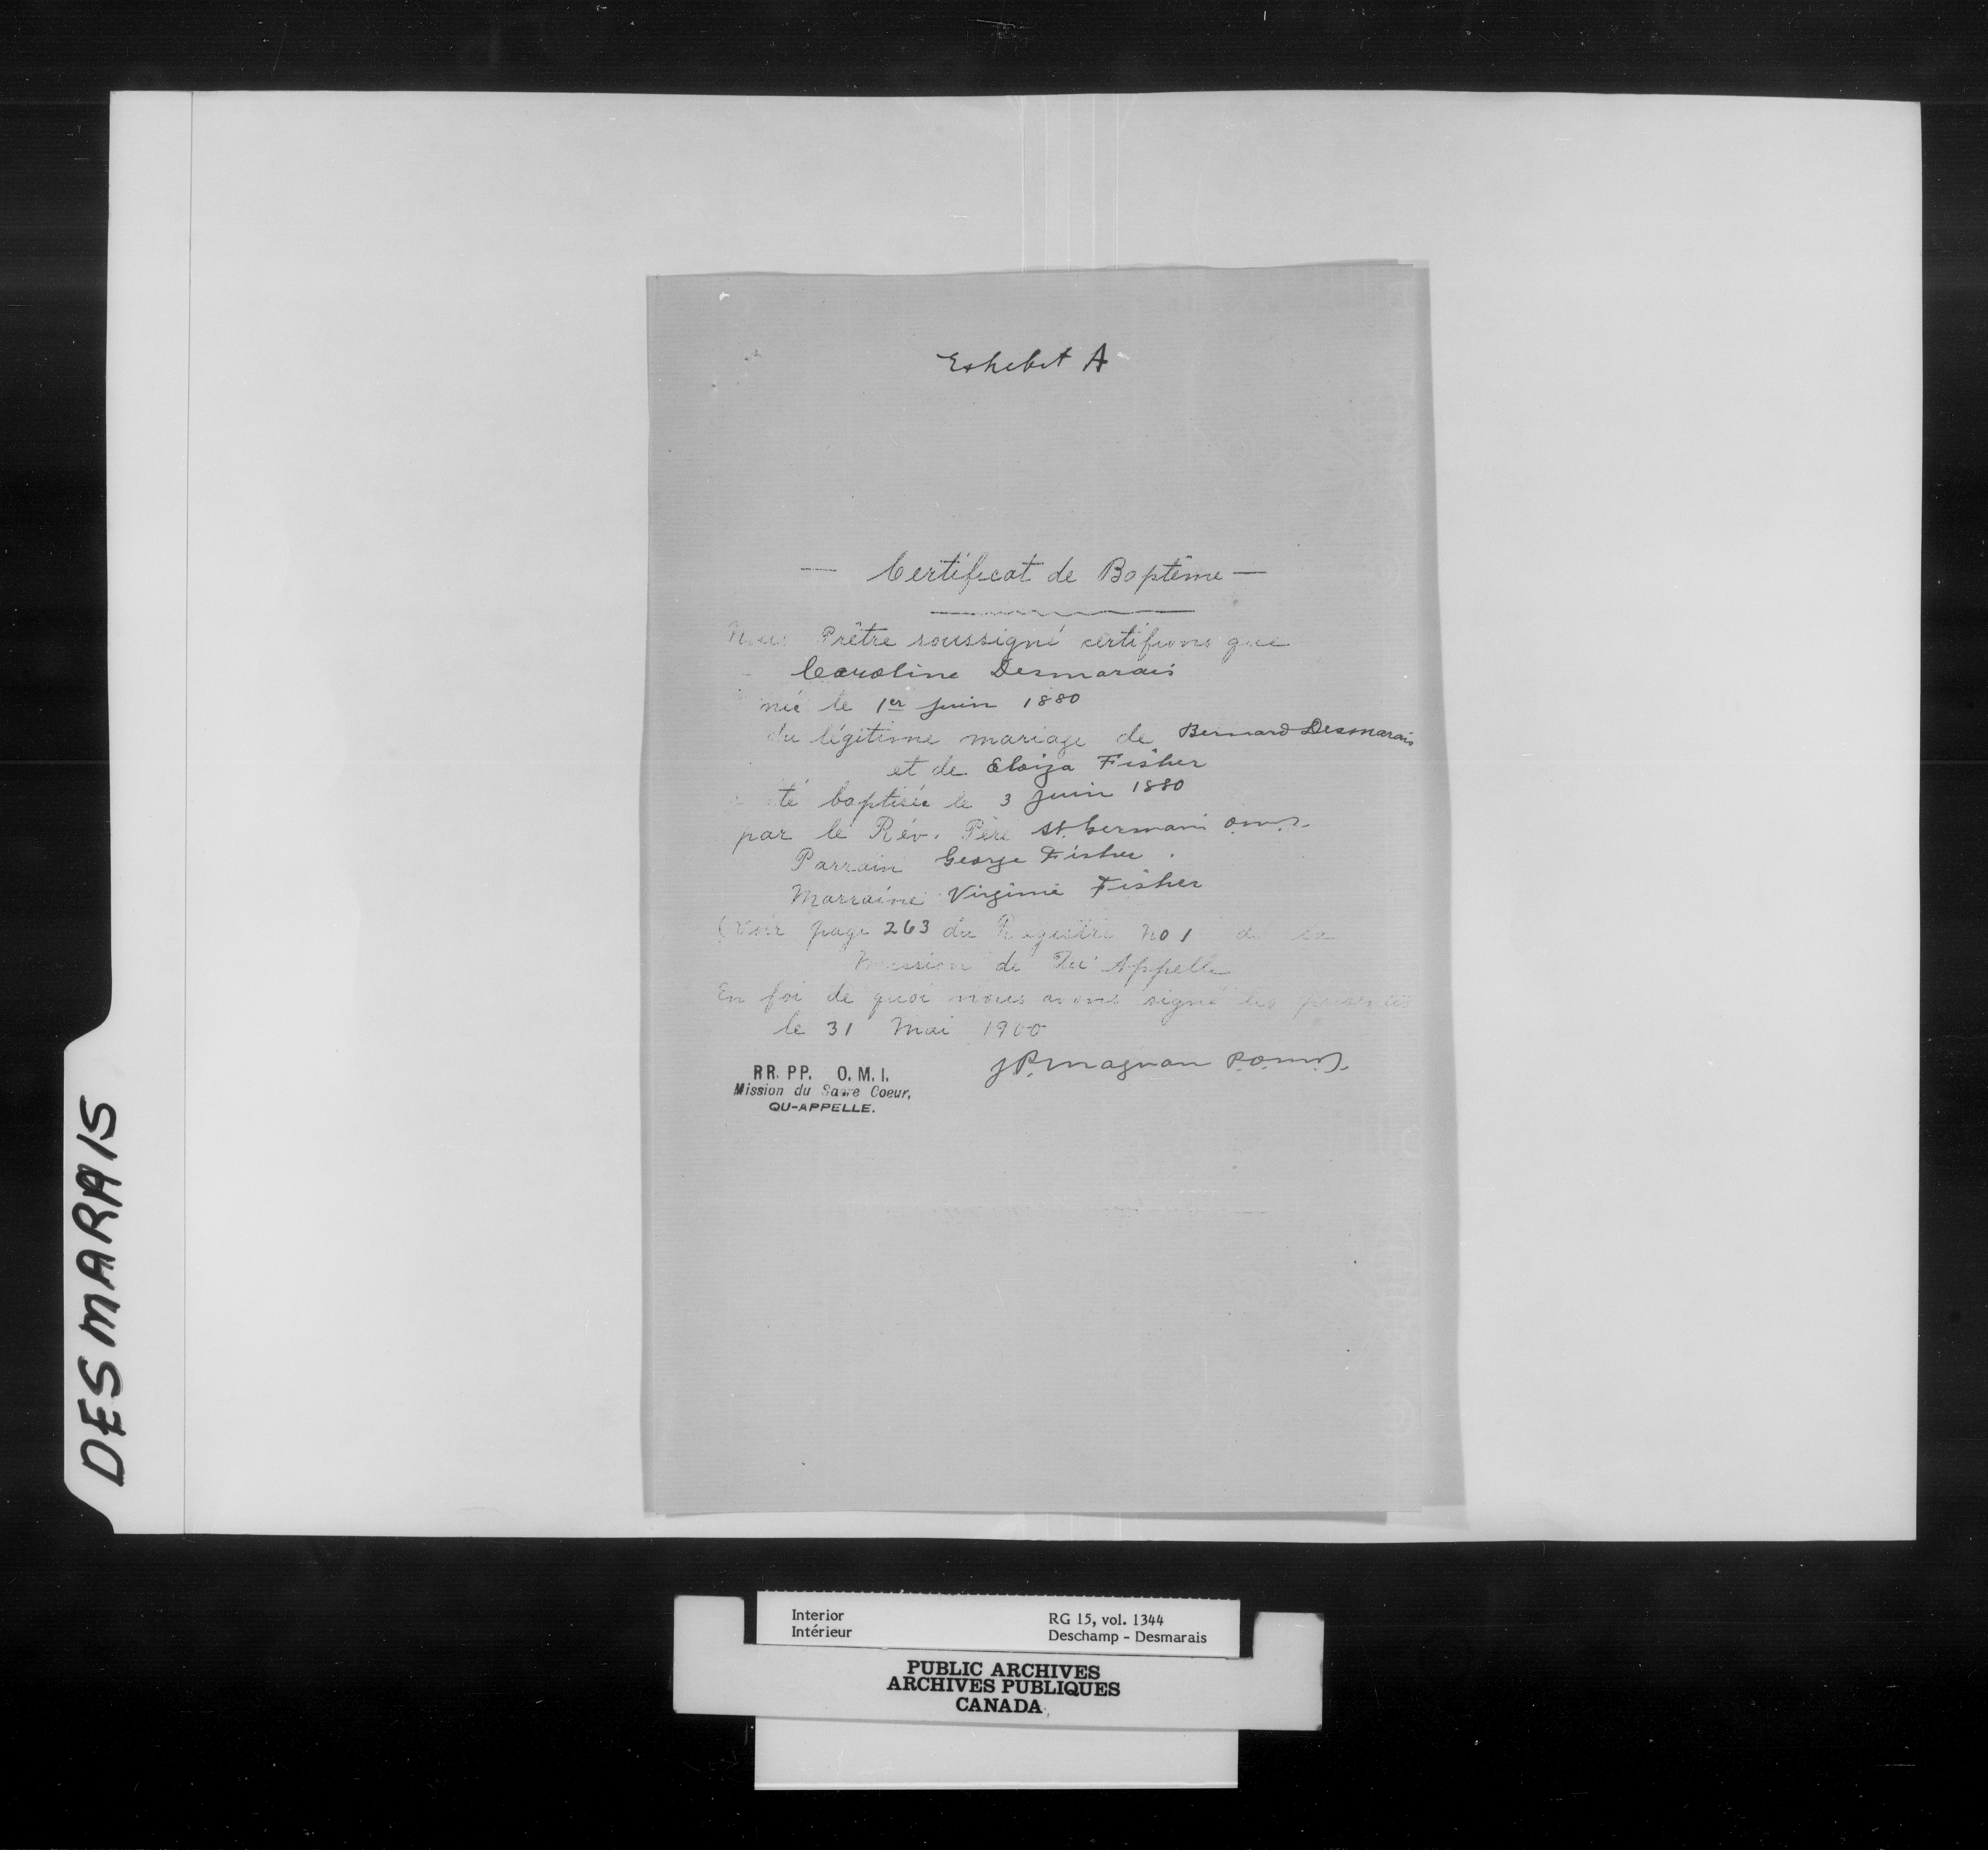 Exhibit A
— Certificat de Baptême —
Nous Prêtre soussigné certifions que
Caroline Desmarais
née le 1er juin 1880
du légitime mariage de Bernard Desmarais
et de Eloiza Fisher
a été baptisée le 3 juin 1880
par le Rév. Père St. Germain o.m.i.
Parrain George Fisher.
Marraine Virginie Fisher
(Voir page 263 du Registre No 1 de la
Mission de Qu'Appelle
En foi de quoi nous avons signé les présentes
le 31 Mai 1900
J P. Magnan P.O.M.I.
RR. PP. O. M. I.
Mission du Sacre Coeur,
QU-APPELLE.
DESMARAIS
Interior
Intérieur
RG 15, vol. 1344
Deschamp - Desmarais
PUBLIC ARCHIVES
ARCHIVES PUBLIQUES
CANADA